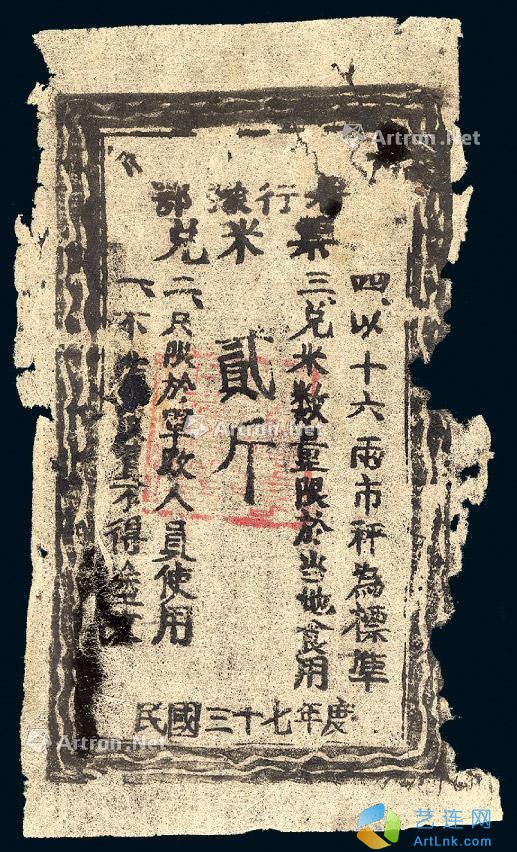 鄂 行
兑米票
一、不 不得塗
二、只限於軍政人員使用
貳斤
三、兑米数量限於当地食用
四、以十六兩市秤為標準
民國三十七年度
Artron.Net
Artron.Net
Artron.Net
艺连网
ArtLnk.com